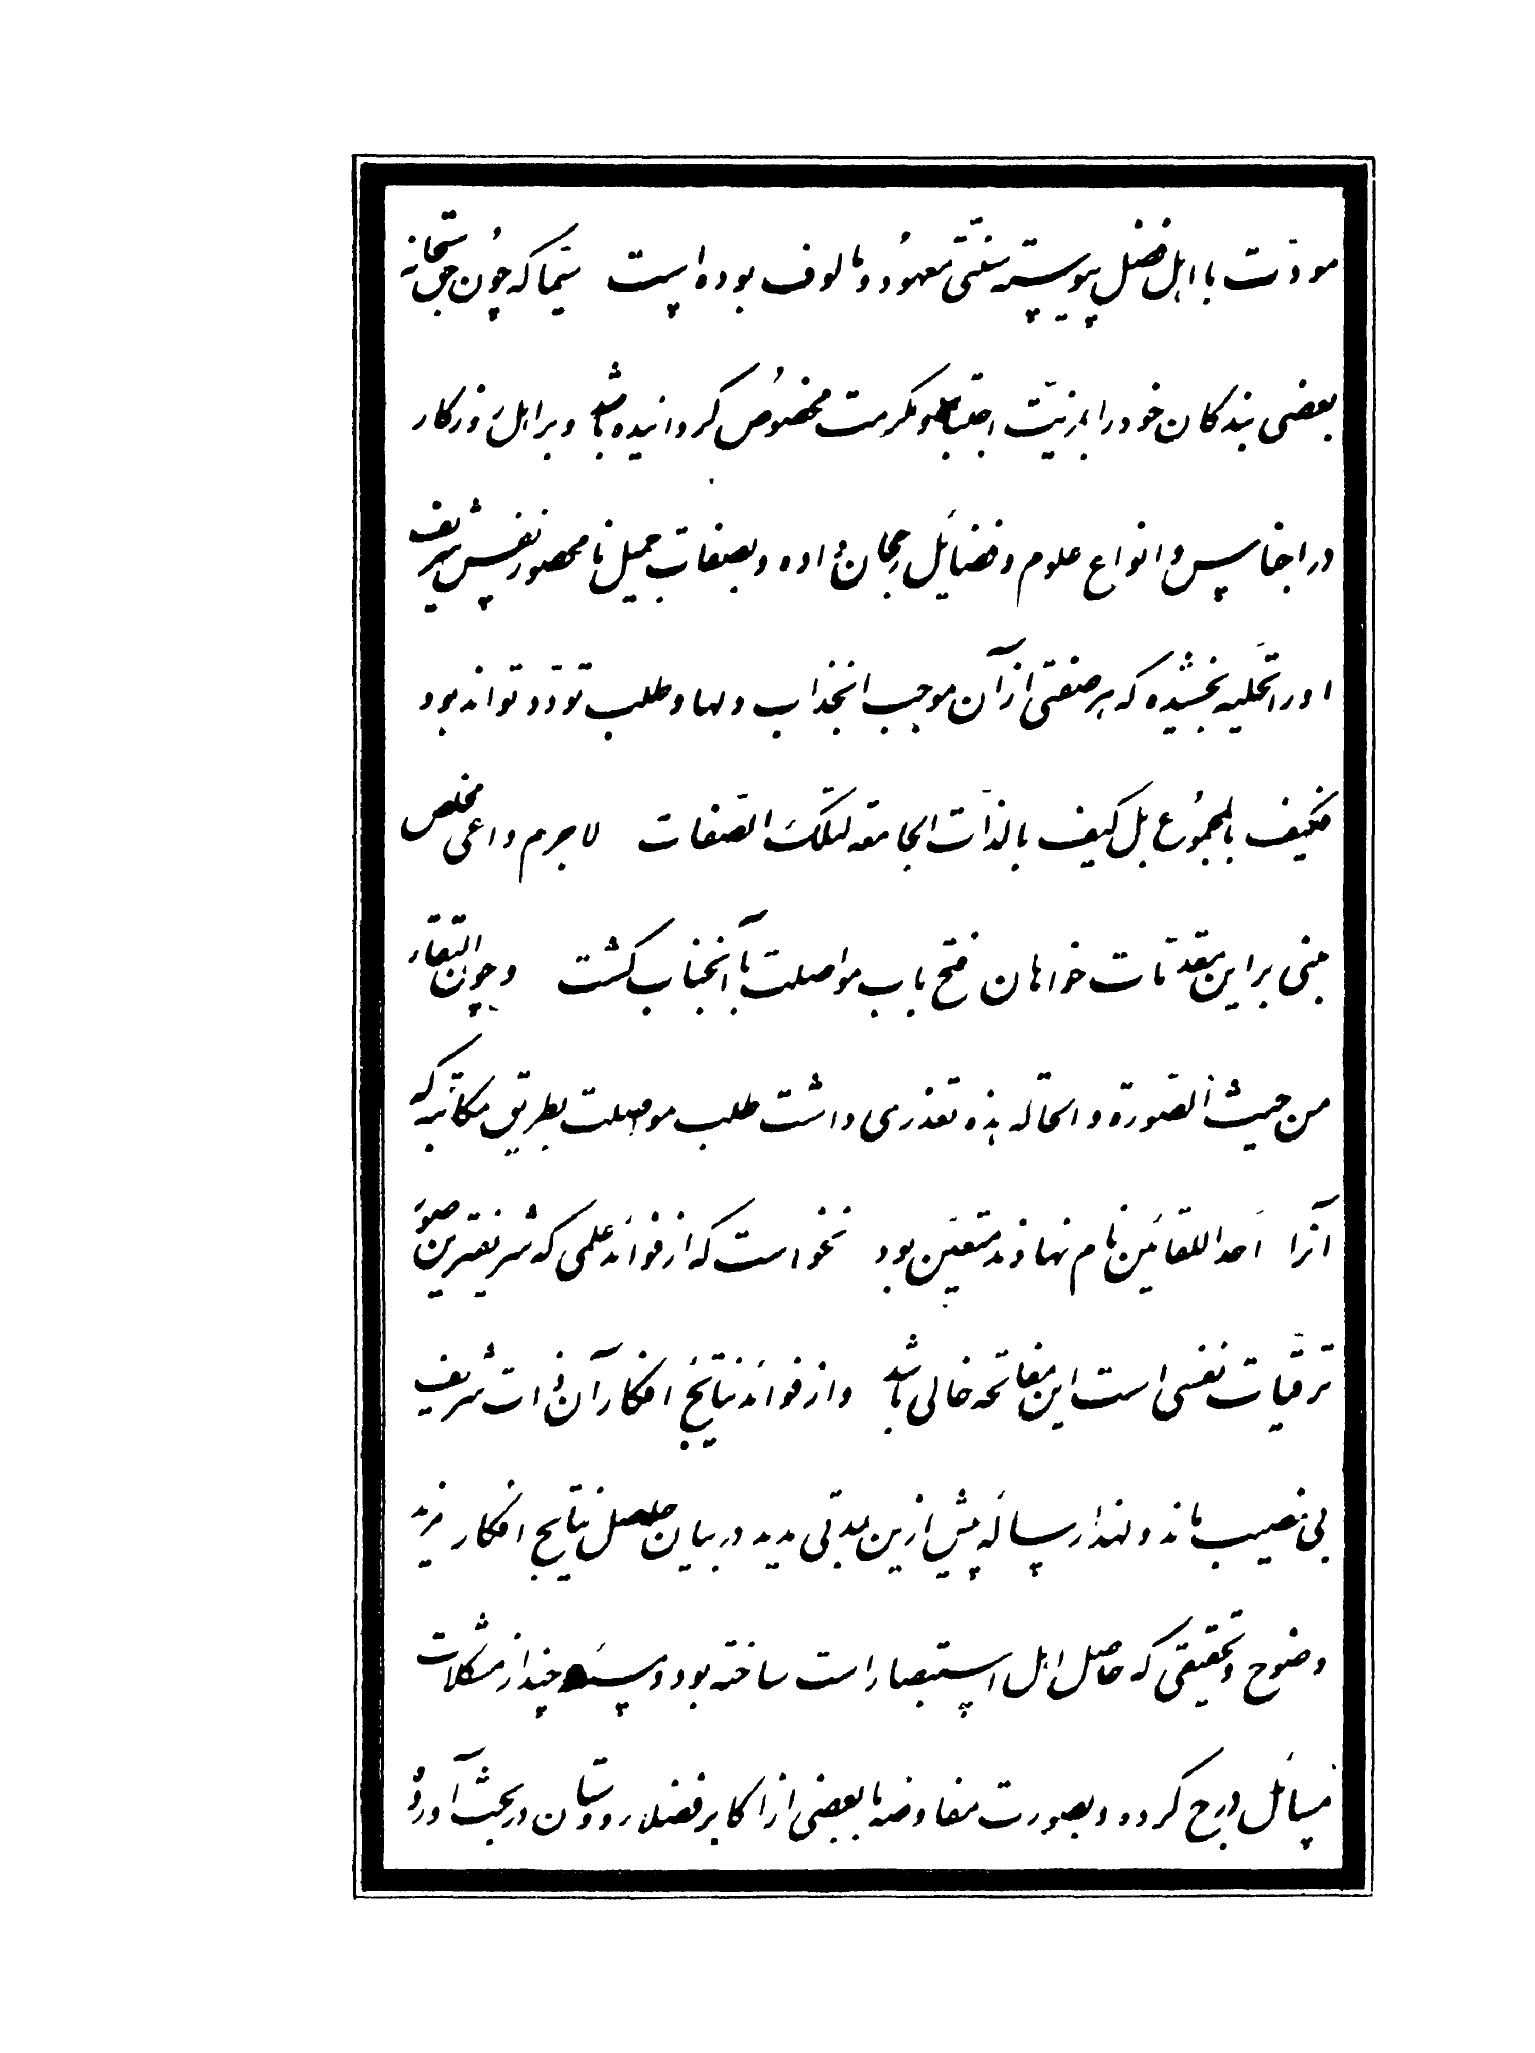 مودّت با اهل فضل پیوسته سنّتی معهود و مالوف بوده است سیّما که چون حق سبحانه
بعضی بندکان خود را بمزیّت اجتبا و مکرمت مخصُوص کردانیده باشد و بر اهل روزکار
در اجناس و انواع علوم و فضایل رجحان داده و بصفات جمیل نامحصور نفس شریف
او را تحلیه بخشیده که هر صفتی از آن موجب انجذاب دلها و طلب تودّد تواند بود
فکیف بالمجمُوع بل کیف بالذّات الجامعه لتلک الصّفات لاجرم داعی مخلص
مبنی بر این مقدّمات خواهان فتح باب مواصلت با آنجناب کشت و چون التقاء
من حیث الصّورة و الحاله هذه تعذری داشت طلب مواصلت بطریق مکاتبه که
آنرا احد اللقائین نام نهادند متعیّن بود نخواست که از فوائد علمی که شریفترین صور
ترقّیات نفسی است این مفاتحه خالی باشد و از فوائد نتایج افکار آن ذات شریف
بی نصیب ماند و لهذا رساله پیش ازین بمدتی مدید در بیان حاصل نتایج افکار مزید
وضوح و تحقیقی که حاصل اهل استبصار است ساخته بود و چند از مشکلات
مسائل درج کرده و بصورت مفاوضه با بعضی از اکابر فضلاء و دوستان در بحث آورده